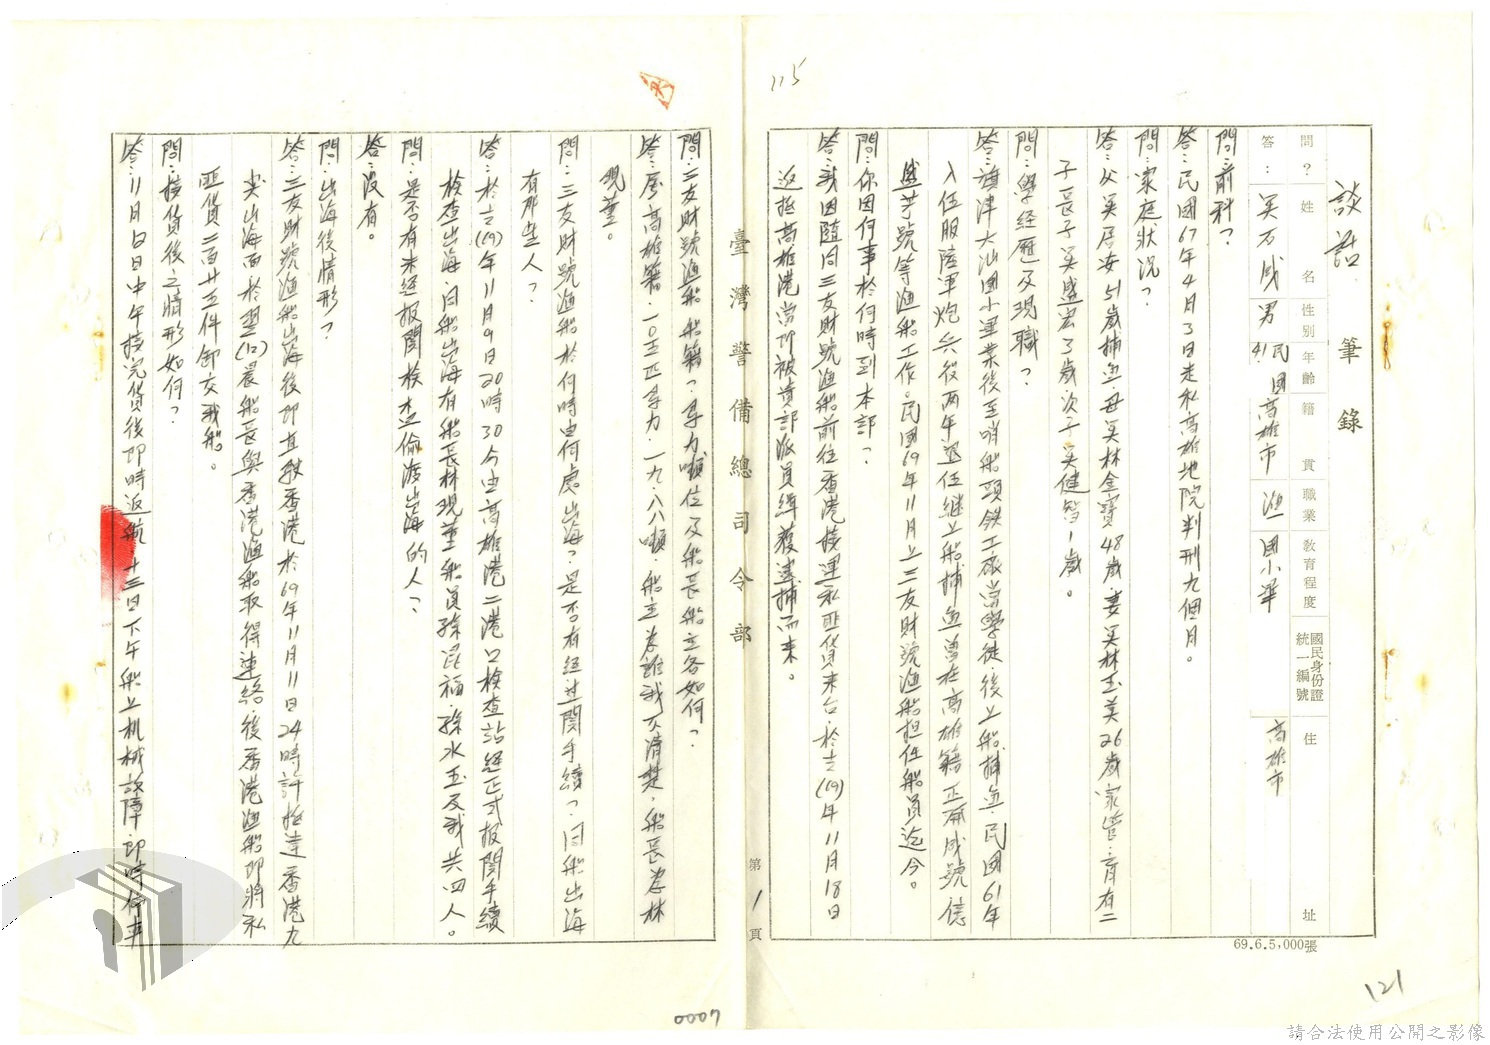 115
談話筆錄
問？姓名 性別 年齡 籍貫 職業 教育程度 國民身份證統一編號 住址
答：吴石成 男 41. 民國 高雄市 漁 國小畢 高雄市
問：前科？
答：民國67年4月3日走私高雄地院判刑九個月。
問：家庭狀況？
答：父吴居安51歲捕魚母吴林金寶48歲妻吴林玉美26歲家管.育有二
子長子吴盛宏3歲次子吴健智1歲。
問：學經歷及現職？
答：旗津大汕國小畢業後至哨船頭鉄工廠當學徒後上船捕魚.民國61年
入伍服陸軍炮兵役两年退伍繼上船捕魚曾在高雄籍正商成號信
盛芋號等漁船工作.民國69年11月上三友財號漁船担任船員迄今。
問：你因何事於何時到本部？
答：我因隨同三友財號漁船前往香港接運私匪貨来台.於去(69)年11月18日
返抵高雄港當即被貴部派員緝獲逮捕而来。
臺灣警備總司令部
第1頁
69.6.5,000張
121
問：三友財號漁船船籍？馬力噸位及船長船主各如何？
答：屬高雄籍.一〇五匹馬力.一九.八八噸.船主為誰我不清楚.船長為林
現董。
問：三友財號漁船於何時由何處出海？是否有經过関手續？同船出海
有那些人？
答：於去(69)年11月9日20時30分由高雄港二港口檢查站經正式报関手續
檢查出海.同船出海有船長林現董船員孫昆福.孫水玉及我共四人。
問：是否有未經报関檢查偷渡出海的人？
答：没有。
問：出海後情形？
答：三友財號漁船出海後即直駛香港於69年11月11日24時許抵達香港九
尖山海面於翌(12)晨船長與香港漁船取得連絡.後香港漁船即將私
匪貨二百廿五件卸交我船。
問：接貨後之情形如何？
答：11月12日中午接完貨後即時返航.十三日下午船上机械故障.即時停車
0007
請合法使用公開之影像